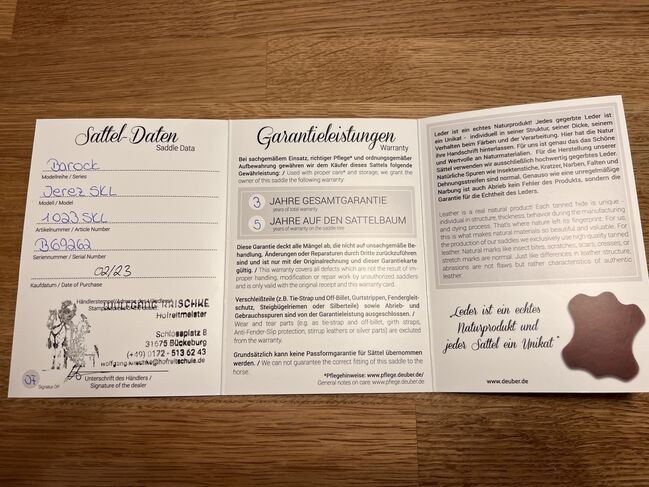 Sattel-Daten
Saddle Data
Barock
Modellreihe / Series
Jerez SKL
Modell / Model
1023 SKL
Artikelnummer / Article Number
B69262
Seriennummer / Serial Number
02/23
Kaufdatum / Date of Purchase
Händlerstempel/Adresse des Händlers
WOLFGANG KRISCHKE
Hofreitmeister
Schlossplatz 8
31675 Bückeburg
(+49) 0172 - 513 62 43
wolfgang.krischke@hofreitschule.de
Unterschrift des Händlers /
Signature of the dealer
Garantieleistungen
Warranty
Bei sachgemäßem Einsatz, richtiger Pflege* und ordnungsgemäßer
Aufbewahrung gewähren wir dem Käufer dieses Sattels folgende
Gewährleistung: / Used with proper care* and storage, we grant the
owner of this saddle the following warranty:
3 JAHRE GESAMTGARANTIE
years of total warranty
5 JAHRE AUF DEN SATTELBAUM
years of warranty on the saddle tree
Diese Garantie deckt alle Mängel ab, die nicht auf unsachgemäße Be-
handlung, Änderungen oder Reparaturen durch Dritte zurückzuführen
sind und ist nur mit der Originalrechnung und dieser Garantiekarte
gültig. / This warranty covers all defects which are not the result of im-
proper handling, modification or repair work by unauthorized saddlers
and is only valid with the original receipt and this warranty card.
Verschleißteile (z.B. Tie-Strap und Off-Billet, Gurtstrippen, Fendergleit-
schutz, Steigbügelriemen oder Silberteile) sowie Abrieb- und
Gebrauchsspuren sind von der Garantieleistung ausgeschlossen. /
Wear and tear parts (e.g. as tie-strap and off-billet, girth straps,
Anti-Fender-Slip protection, stirrup leathers or silver parts) are excluded
from the warranty.
Grundsätzlich kann keine Passformgarantie für Sättel übernommen
werden. / We can not guarantee the correct fitting of this saddle to the
horse.
*Pflegehinweise: www.pflege.deuber.de/
General notes on care: www.pflege.deuber.de
Leder ist ein echtes Naturprodukt! Jedes gegerbte Leder ist
ein Unikat - individuell in seiner Struktur, seiner Dicke, seinem
Verhalten beim Färben und der Verarbeitung. Hier hat die Natur
ihre Handschrift hinterlassen. Für uns ist genau das das Schöne
und Wertvolle an Naturmaterialien. Für die Herstellung unserer
Sättel verwenden wir ausschließlich hochwertig gegerbtes Leder.
Natürliche Spuren wie Insektenstiche, Kratzer, Narben, Falten und
Dehnungsstreifen sind normal. Genauso wie eine unregelmäßige
Narbung ist auch Abrieb kein Fehler des Produkts, sondern die
Garantie für die Echtheit des Leders.
Leather is a real natural product! Each tanned hide is unique -
individual in structure, thickness, behavior during the manufacturing
and dying process. That's where nature left its fingerprint. For us,
this is what makes natural materials so beautiful and valuable. For
the production of our saddles we exclusively use high-quality tanned
leather. Natural marks like insect bites, scratches, scars, creases, or
stretch marks are normal. Just like differences in leather structure,
abrasions are not flaws but rather characteristics of authentic
leather.
„Leder ist ein echtes
Naturprodukt und
jeder Sattel ein Unikat"
www.deuber.de